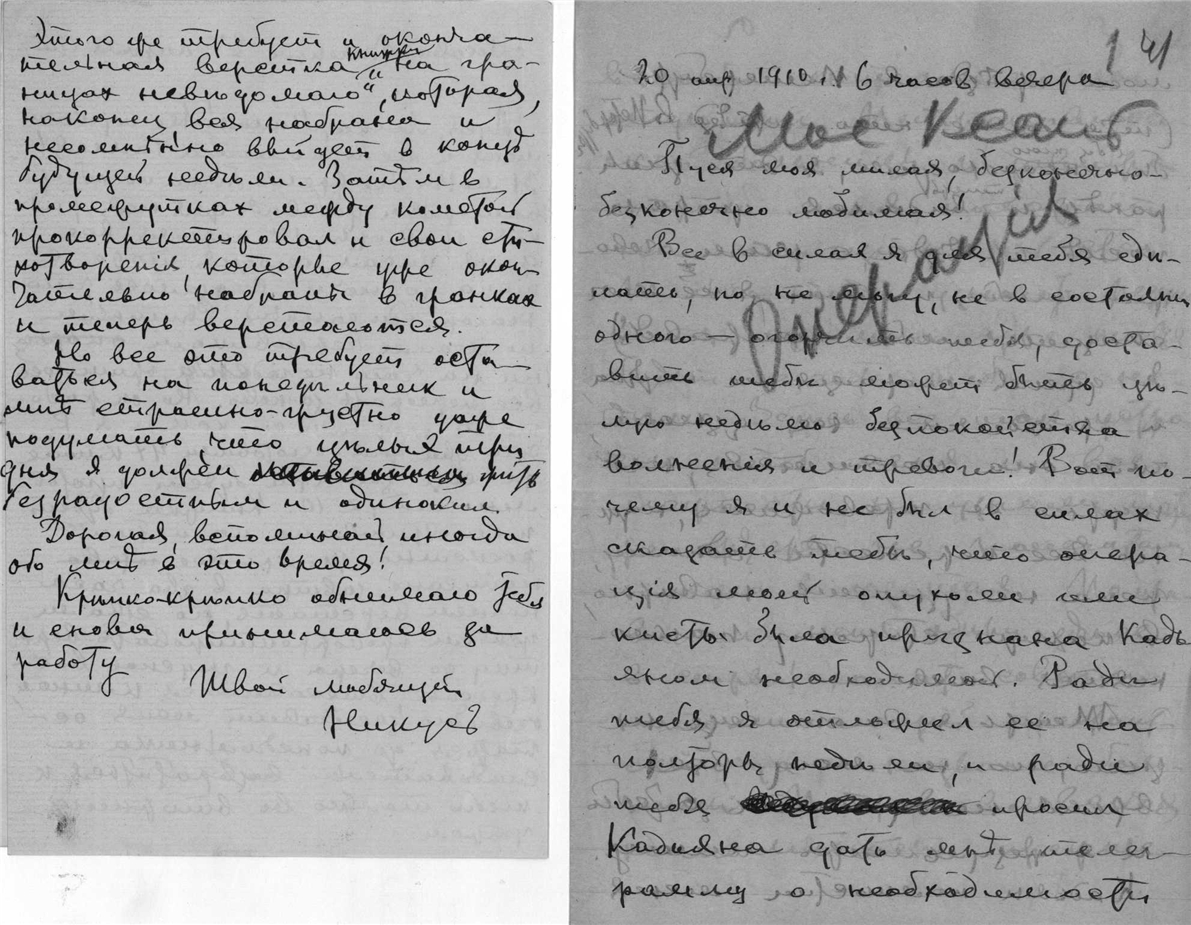 Этого же требует и оконча-
тельная верстка книжки „На гра-
ницах неведомаго“, которая,
наконец, вся набрана и
несомненно выйдет в конце
будущей недели. Затѣм в
промежутках между кометой
прокорректировал и свои сти-
хотворенія, которые уже окон-
чательно набраны в гранках
и теперь верстаются.
Но все это требует оста-
ваться на понедѣльник и
мнѣ страшно-грустно даже
подумать, что цѣлых три
дня я должен жить
безрадостным и одиноким.
Дорогая, вспоминай иногда
обо мнѣ в это время!
Крѣпко-крѣпко обнимаю тебя
и снова принимаюсь за
работу
Твой любящій
Никусь
141
20 апр 1910 г. 6 часов вечера
Пуся моя милая, безконечно-
безконечно любимая!
Все в силах я для тебя сдѣ-
лать, но не могу, не в состояніи
одного — огорчить тебя, доста-
вить тебѣ может быть цѣ-
лую недѣлю безпокойства
волненія и тревоги! Вот по-
чему я и не был в силах
сказать тебѣ, что опера-
ція моей опухоли или
кисты была признана Кадь
яном необходимой. Ради
тебя я отложил ее на
полторы недѣли, и ради
тебя просил
Кадьяна дать мнѣ теле-
грамму о необходимости
Операція